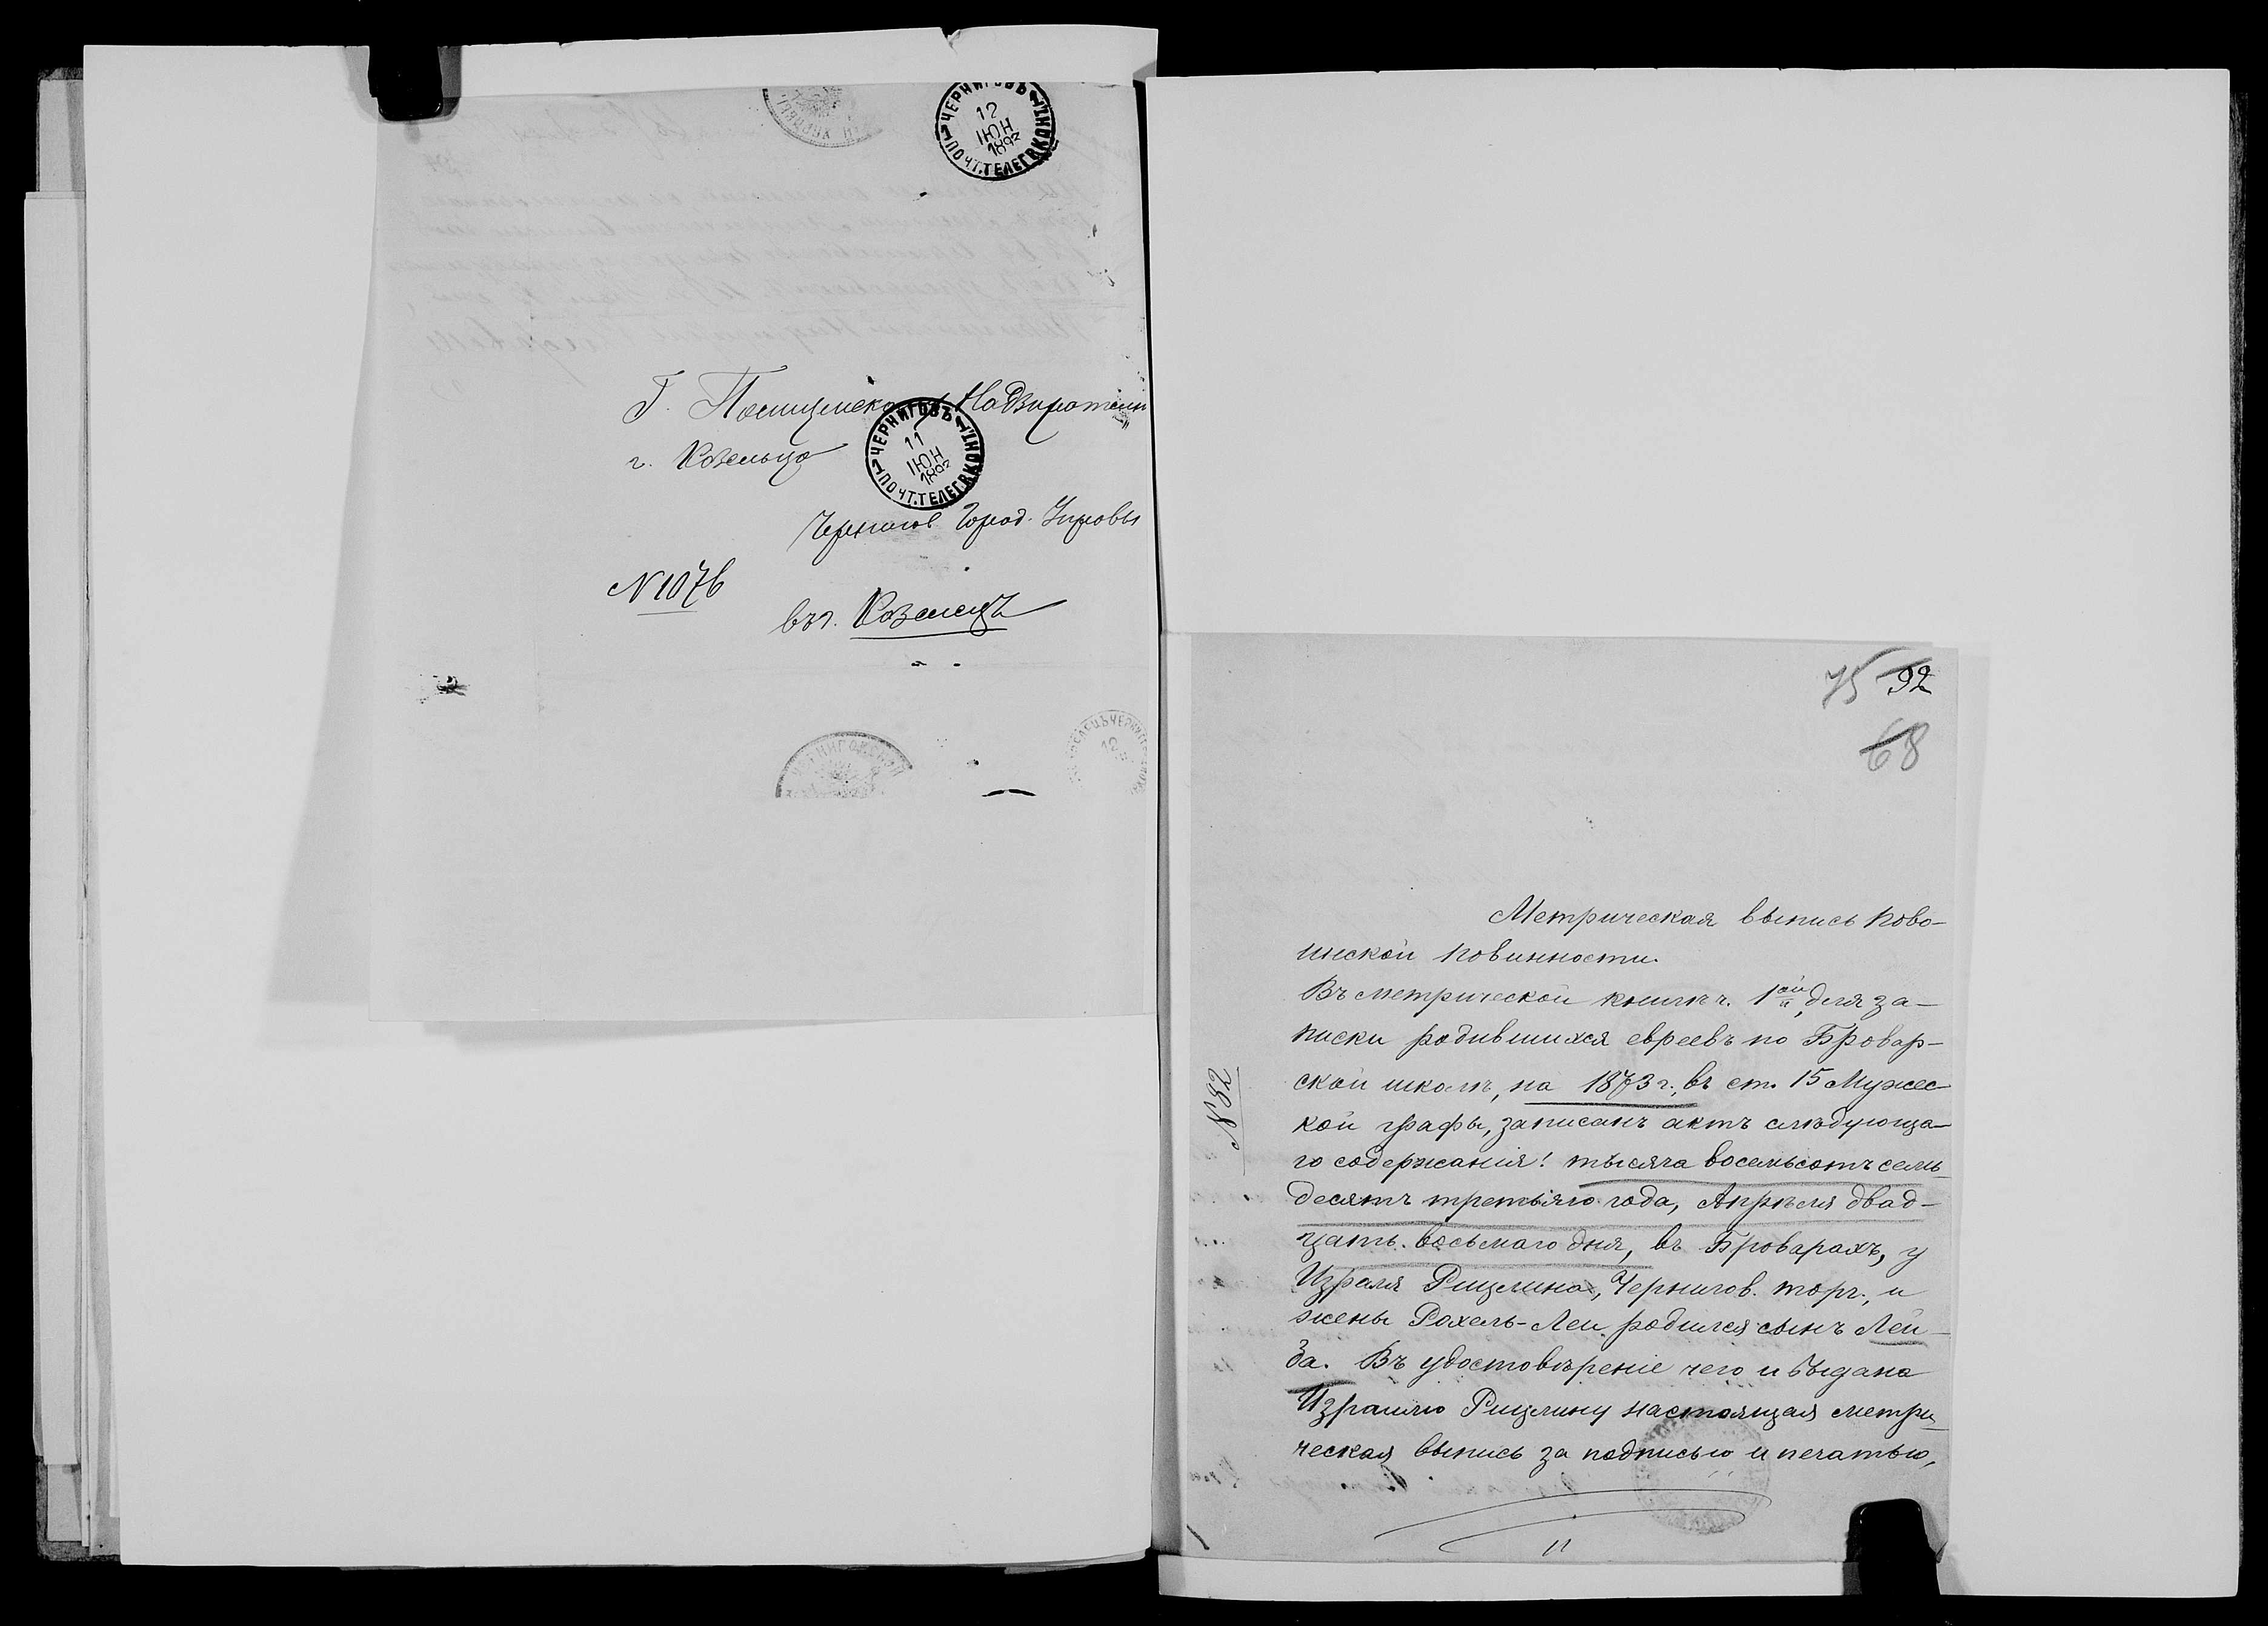 ЧЕРНИГОВЪ
12
ІЮН
1893
ПОЧТ.ТЕЛЕГ.КОНТ.
Г. Полицейско Надзирателю
г. Козельца
ЧЕРНИГОВЪ
11
ІЮН
1893
ПОЧТ.ТЕЛЕГ.КОНТ.
Чернигов Город. Управы
N 1076
въ г. Козелецъ
ЧЕРНИГОВСКОЙ
75 92
68
N 32
Метрическая выпись по во-
инской повинности.
Въ метрической книгѣ ч. 1ой, для за-
писки родившихся евреевъ по Бровар-
ской школѣ, на 1873 г., въ ст. 15 Мужес-
кой графы, записанъ актъ слѣдующа-
го содержанія: тысяча восемьсотъ семь-
десятъ третьяго года, Апрѣля двад-
цать восьмаго дня, въ Броварахъ, у
Израля Рицлина, Чернигов. торг., и
жены Рохель-Леи родился сынъ Лей-
ба. Въ удостовѣреніе чего и выдана
Израилю Рицлину настоящая метри-
ческая выпись за подписью и печатью,